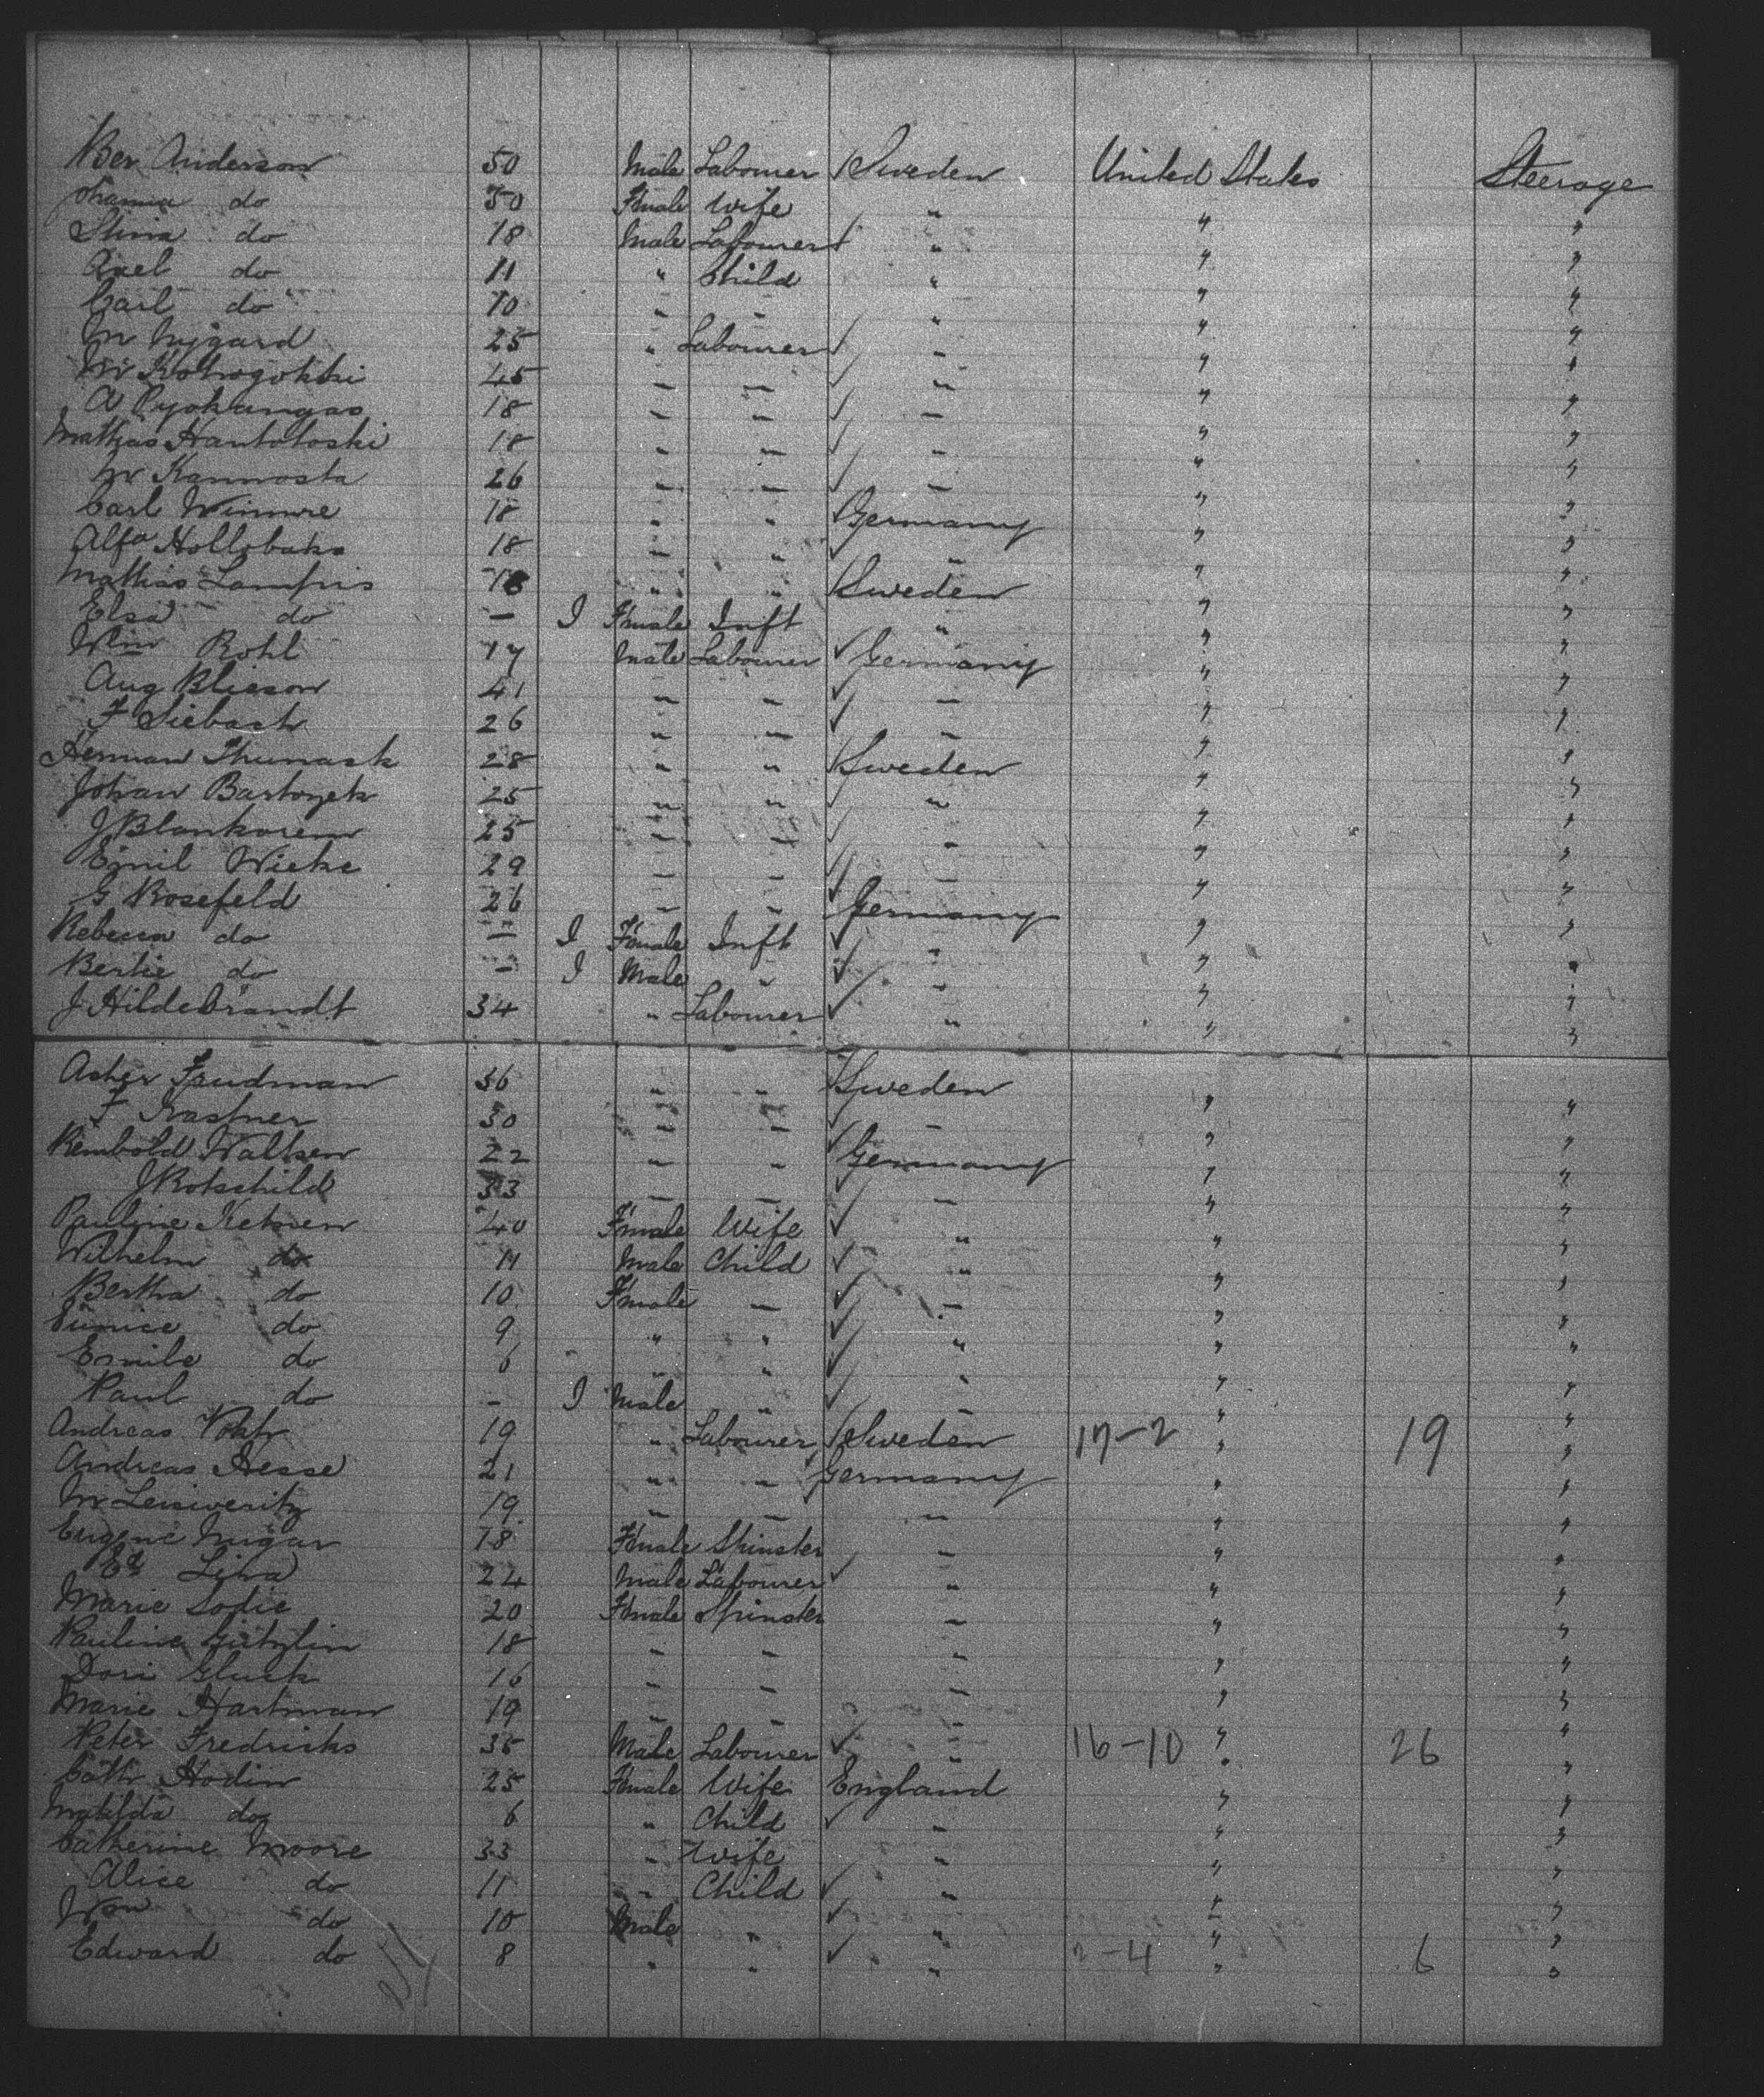 Ber Anderson 50 Male Labourer Sweden United States Steerage
Johanna do 50 Female Wife " " "
Stina do 18 Male Labourer " " "
Axel do 11 " Child " " "
Carl do 10 " " " " "
M Nygard 25 " Labourer " " "
45 " " " " "
A Pyokangas 18 " " " " "
Mathias Hantotoski 18 " " " " "
M Kannosta 26 " " " " "
Carl 18 " " Germany " "
Alfd 18 " " " " "
Mathias Lampris 18 " " Sweden " "
Elsa do – I Female Inft " " "
Wm Rohl 17 Male Labourer Germany " "
Aug Blieson 41 " " " " "
F Siebash 26 " " " " "
Herman 28 " " Sweden " "
Johan 25 " " " " "
J 25 " " " " "
Emil Wieke 29 " " " " "
G Rosefeld 26 " " Germany " "
Rebecca do – I Female Inft " " "
Bertie do – I Male " " " "
J Hildebrandt 34 " Labourer " " "
Asher Frudman 36 " " Sweden " "
F Kastner 30 " " " " "
Rembold Waltsen 22 " " Germany " "
J Rotschild 33 " " " " "
Pauline 40 Female Wife " " "
Wilhelm do 11 Male Child " " "
Bertha do 10 Female " " " "
Eunice do 9 " " " " "
Emile do 6 " " " " "
Paul do – I Male " " " "
Andreas 19 " Labourer Sweden 17-2 " 19 "
Andreas Hesse 21 " " Germany " "
M 19 " " " " "
Eugene 18 Female Spinster " " "
Ed 24 Male Labourer " " "
Marie Sodie 20 Female Spinster " " "
Pauline Gutzlin 18 " " " " "
Dori Gluck 16 " " " " "
Marie Hartman 19 " " " " "
Peter Fredricks 35 Male Labourer " 16-10 " 26 "
Cath Hodin 25 Female Wife England " "
Matilda do 6 " Child " " "
Catherine Moore 33 " Wife " " "
Alice do 11 " Child " " "
Wm do 10 Male " " " "
Edward do 8 " " " 2-4 " 6 "